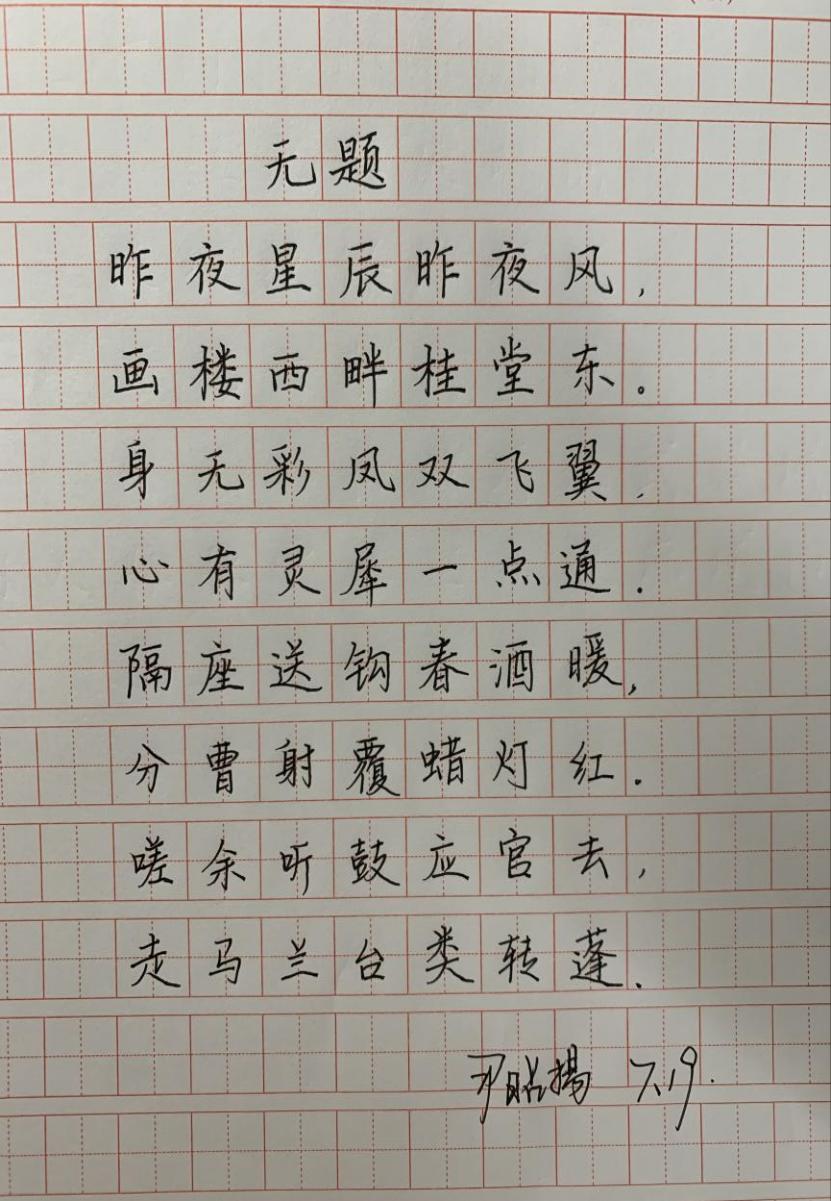 无题
昨夜星辰昨夜风，
画楼西畔桂堂东。
身无彩凤双飞翼，
心有灵犀一点通.
隔座送钩春酒暖，
分曹射覆蜡灯红.
嗟余听鼓应官去，
走马兰台类转蓬.
尹昭揚 7.19.